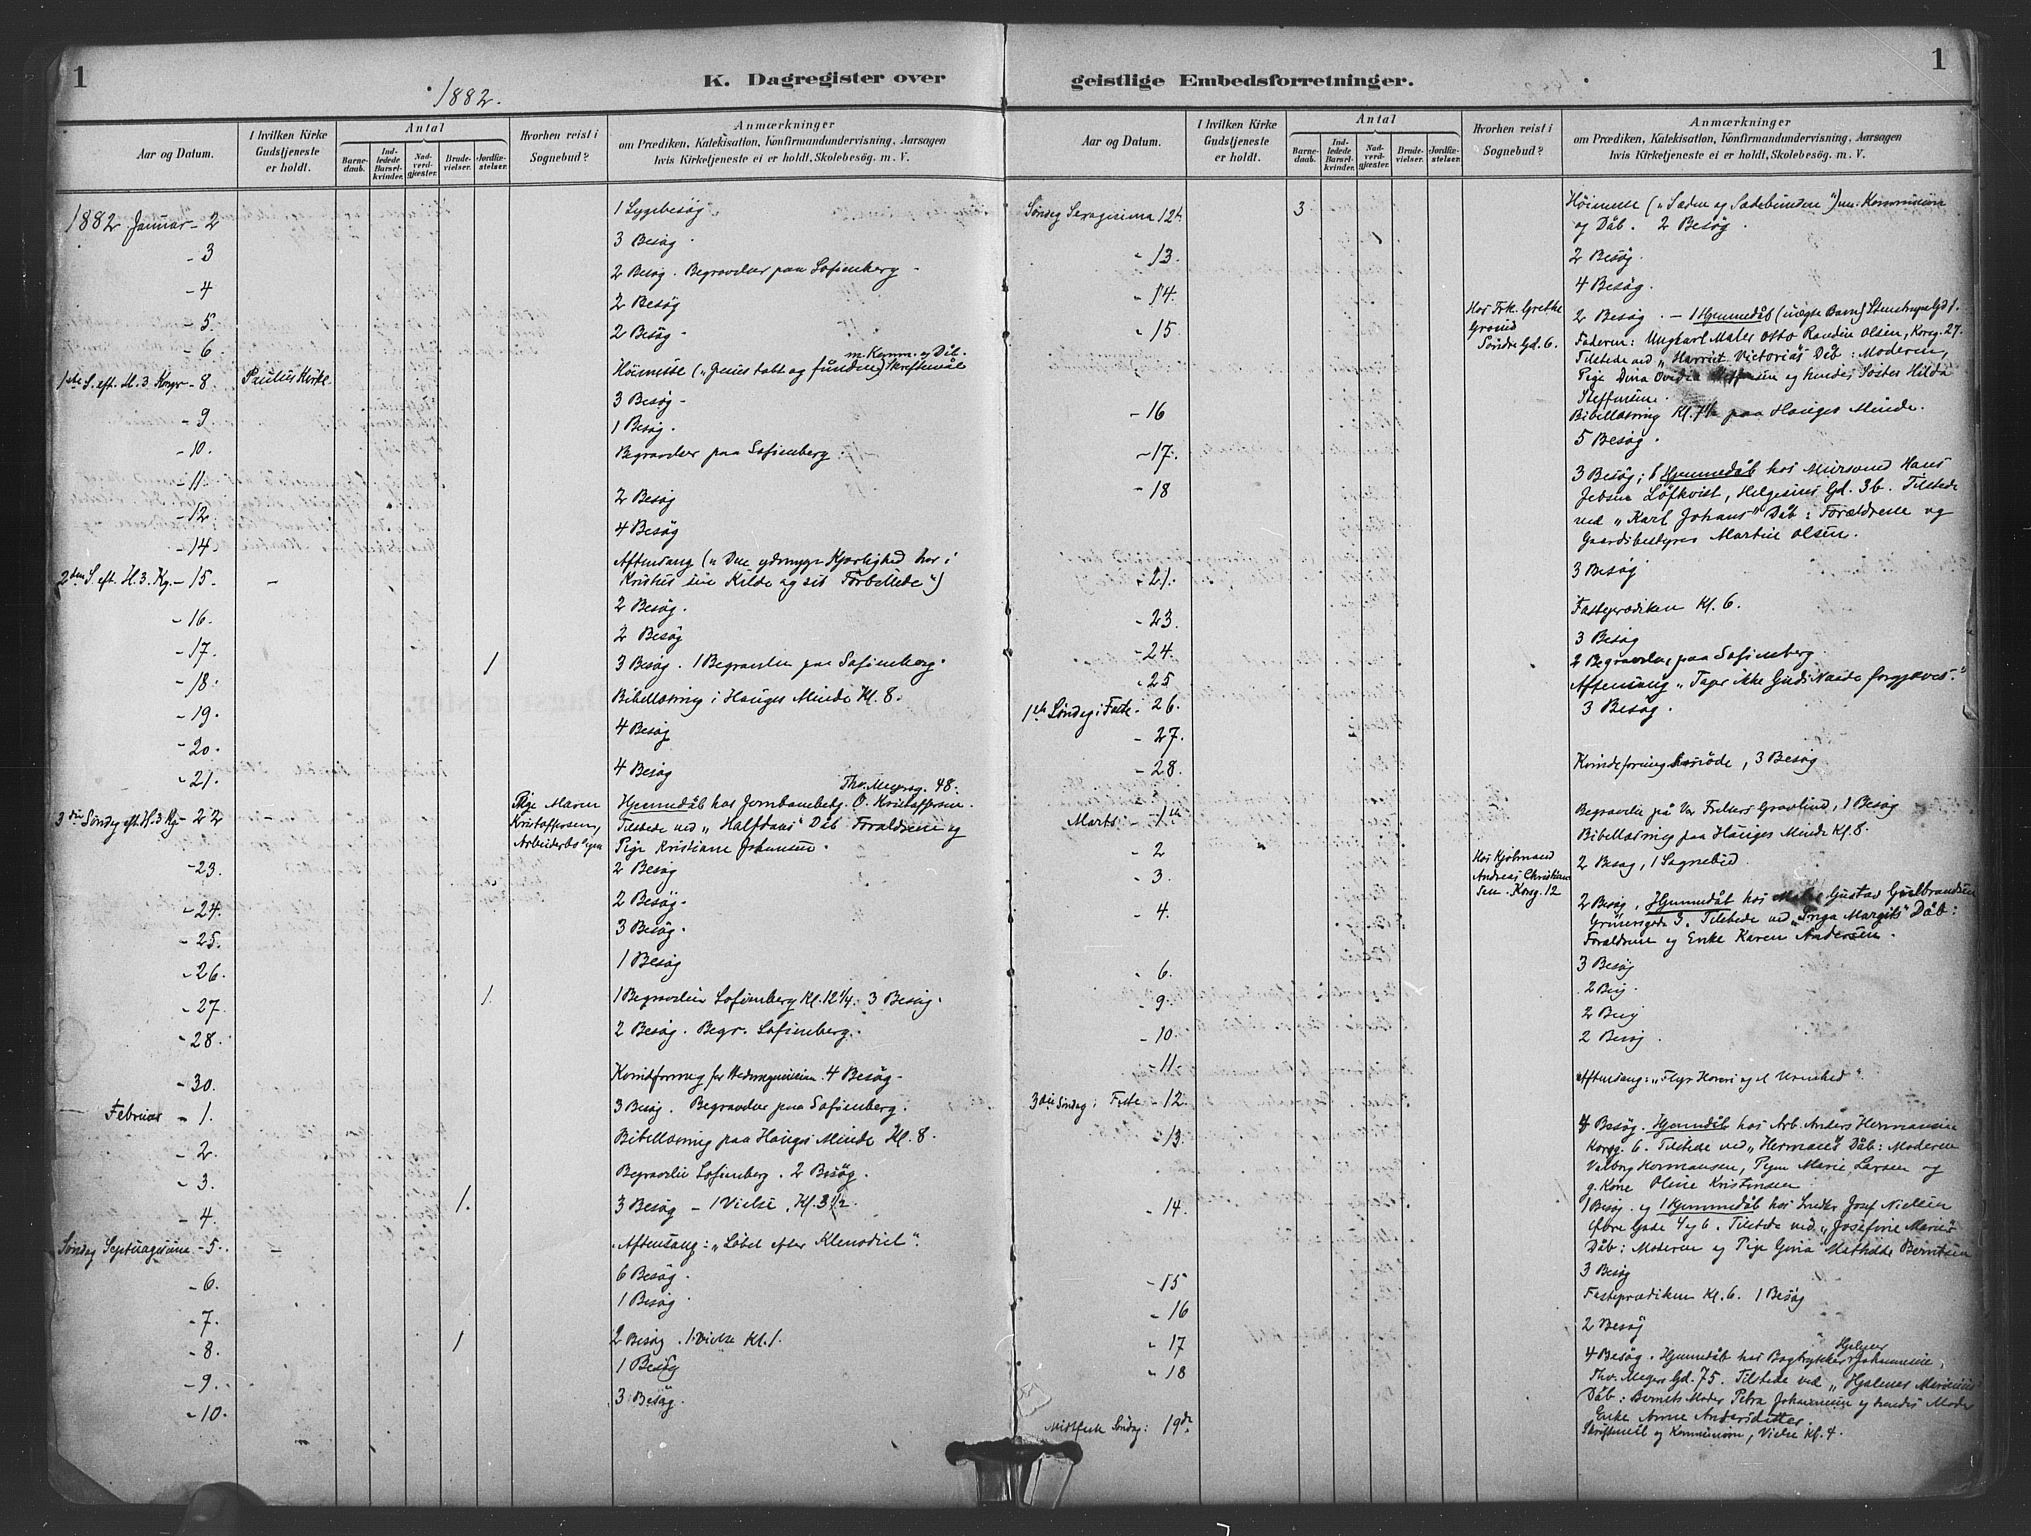 1
K. Dagregister over
1882.
Aar og Datum.
I hvilken Kirke Gudstjeneste er holdt.
Antal
Barnedaab.
Indledede Barselkvinder.
Nadverdgjæster.
Brudevielser.
Jordfæstelser.
Hvorhen reist i Sognebud?
Anmærkninger
om Prædiken, Katekisation, Konfirmandundervisning, Aarsagen
hvis Kirketjeneste ei er holdt, Skolebesög. m. V.
1882 Januar - 2
1 Sygebesøg
- 3
3 Besøg
2 Besøg. Begravelser paa Sofienberg
- 4
2 Besøg
- 5.
2 Besøg
- 6.
m. Komm. og Dåb.
1ste S. eft. H. 3 Kongr - 8 Paulus Kirke
Höimesse („Jesus tabt og funden) Skriftemål
3 Besøg
- 9
1 Besøg.
- 10.
Begravelser paa Sofienberg
- 11.
2 Besøg
- 12
4 Besøg
- 14
Aftensang („Den ydmyge Kjærlighed har i
2den S. eft. H. 3. Kg. - 15. -
Kristus sin Kilde og sit Forbillede“)
2 Besøg.
- 16.
2 Besøg
- 17.
1 3 Besøg. 1 Begravelse paa Sofienberg.
- 18.
Bibellæsning i Hauges Minde Kl. 8.
- 19.
4 Besøg
- 20.
4 Besøg
- 21.
Thv. Meyersg. 48.
Pige Maren
Hjemmedåb hos Jernbanebetj. O. Kristoffersen.
3die Søndag eft. H. 3 Kg - 22 -
Kristoffersen,
Tilstede ved „Halfdans“ Dåb Forældrene og
Pige Kristiane Johansen.
- 23.
2 Besøg
- 24.
2 Besøg.
3 Besøg.
- 25.
1 Besøg
- 26.
- 27.
1. 1 Begravelse Sofienberg Kl. 12 1/4. 3 Besøg.
- 28.
2 Besøg. Begr. Sofienberg.
- 30.
4 Besøg.
Februar - 1.
3 Besøg. Begravelser paa Sofienberg.
- 2.
Bibellæsning paa Hauges Minde Kl. 8.
- 3.
Begravelse Sofienberg. 2 Besøg.
- 4
1. 3 Besøg - 1 Vielse. Kl. 3 1/2.
Søndag Septuagesima - 5. -
Aftensang: „Løbet efter Klenodiet“.
- 6.
6 Besøg.
- 7.
1 Besøg.
- 8.
1 2 Besøg. 1 Vielse Kl. 1.
- 9.
1 Besøg
- 10.
3 Besøg.
1
geistlige Embedsforretninger.
Aar og Datum.
I hvilken Kirke Gudstjeneste er holdt.
Antal
Barnedaab.
Indledede Barselkvinder.
Nadverdgjæster.
Brudevielser.
Jordfæstelser.
Hvorhen reist i Sognebud?
Anmærkninger
om Prædiken, Katekisation, Konfirmandundervisning, Aarsagen
hvis Kirketjeneste ei er holdt, Skolebesög. m. V.
Søndag Sexagesima 12te 3
Høimesse („Sæden og Sædebunden“) m. Kommunion
og Dåb. 2 Besøg.
- 13.
2 Besøg.
- 14
4 Besøg.
Hos Frk. Grethe
Søndre Gd. 6.
- 15
2 Besøg. - 1 Hjemmedåb (uægte Barn) Stenstrups Gd 1.
Faderen: Ungkarl Maler Otto Randin Olsen, Korsg. 27.
Tilstede ved „Harriet Victorias“ Dåb: Moderen,
Pige Dina Ovedia Steffensen og hendes Søster Hilda
Steffensen.
- 16
Bibellæsning Kl. 7 1/2 paa Hauges Minde.
- 17.
5 Besøg.
- 18
3 Besøg; 1 Hjemmedåb hos Mursvend Hans
Jebsen Löfkvist, Helgesens Gd. 3b. Tilstede
ved „Karl Johans“ Dåb: Forældrene og
Gaardsbestyrer Martin Olsen.
- 21.
3 Besøg
- 23.
Fasteprædiken Kl. 6.
- 24.
3 Besøg
- 25
2 Begravelser paa Sofienberg.
1ste Søndag i Faste - 26.
Aftensang „Tager ikke Guds Naade forgjæves.“
- 27.
3 Besøg.
- 28.
Kvindeforeningsmøde, 3 Besøg
Marts - 1ste
Begravelse på Vor Frelsers Gravlund, 1 Besøg
- 2
Bibellæsning paa Hauges Minde Kl. 8.
- 3.
Hos Kjøbmand
Andreas Christian
sen. Korsg. 12
2 Besøg, 1 Sognebud.
- 4.
2 Besøg, Hjemmedåb hos Maler Gustav Gulbrandsen
Grünersgade 3. Tilstede ved „Inga Margits“ Dåb:
Forældrene og Enke Karen Andersen.
- 6.
3 Besøg
- 9.
2 Besøg.
- 10.
2 Besøg
- 11.
2 Besøg
3die Søndag i Faste - 12.
Aftensang: „Flyr Horeri og al Urenhed“.
- 13.
4 Besøg. Hjemmedåb hos Arb. Anders Hermansen
Korsg. 6. Tilstede ved „Hermans“ Dåb: Moderen
Valborg Hermansen, Pigen Marie Larsen og
g. Kone Oline Kristensen.
- 14.
1 Besøg. og 1 Hjemmedåb hos Snedker Josef Nielsen
Øvre Gade 4 og 6. Tilstede ved „Josefine Maries“
Dåb: Moderen og Pige Gina Mathilde Berntsen
- 15
3 Besøg
- 16
Fasteprædiken Kl. 6. 1 Besøg
- 17
2 Besøg
- 18
4 Besøg. Hjemmedåb hos Bogtrykker Johannesen,
Thv. Meyers Gd. 75. Tilstede ved
Dåb: Barnets Moder Petra Johannesen og hendes Moder
Enke Anne Andersdatter.
Midtfaste Søndag: 19de
Skriftemål og Kommunion, Vielse Kl. 4.